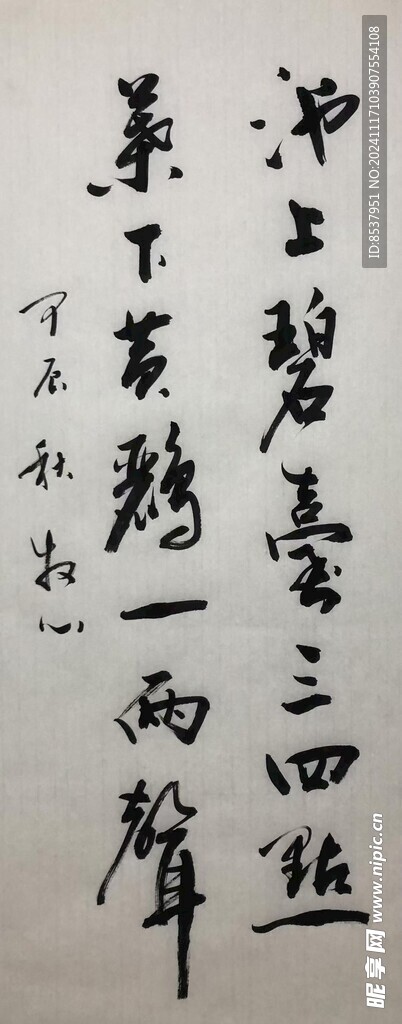 池上碧臺三四點
葉下黄鸝一兩聲
甲辰秋牧心
ID:8537951 NO:20241117103907554108
昵享网 www.nipic.cn